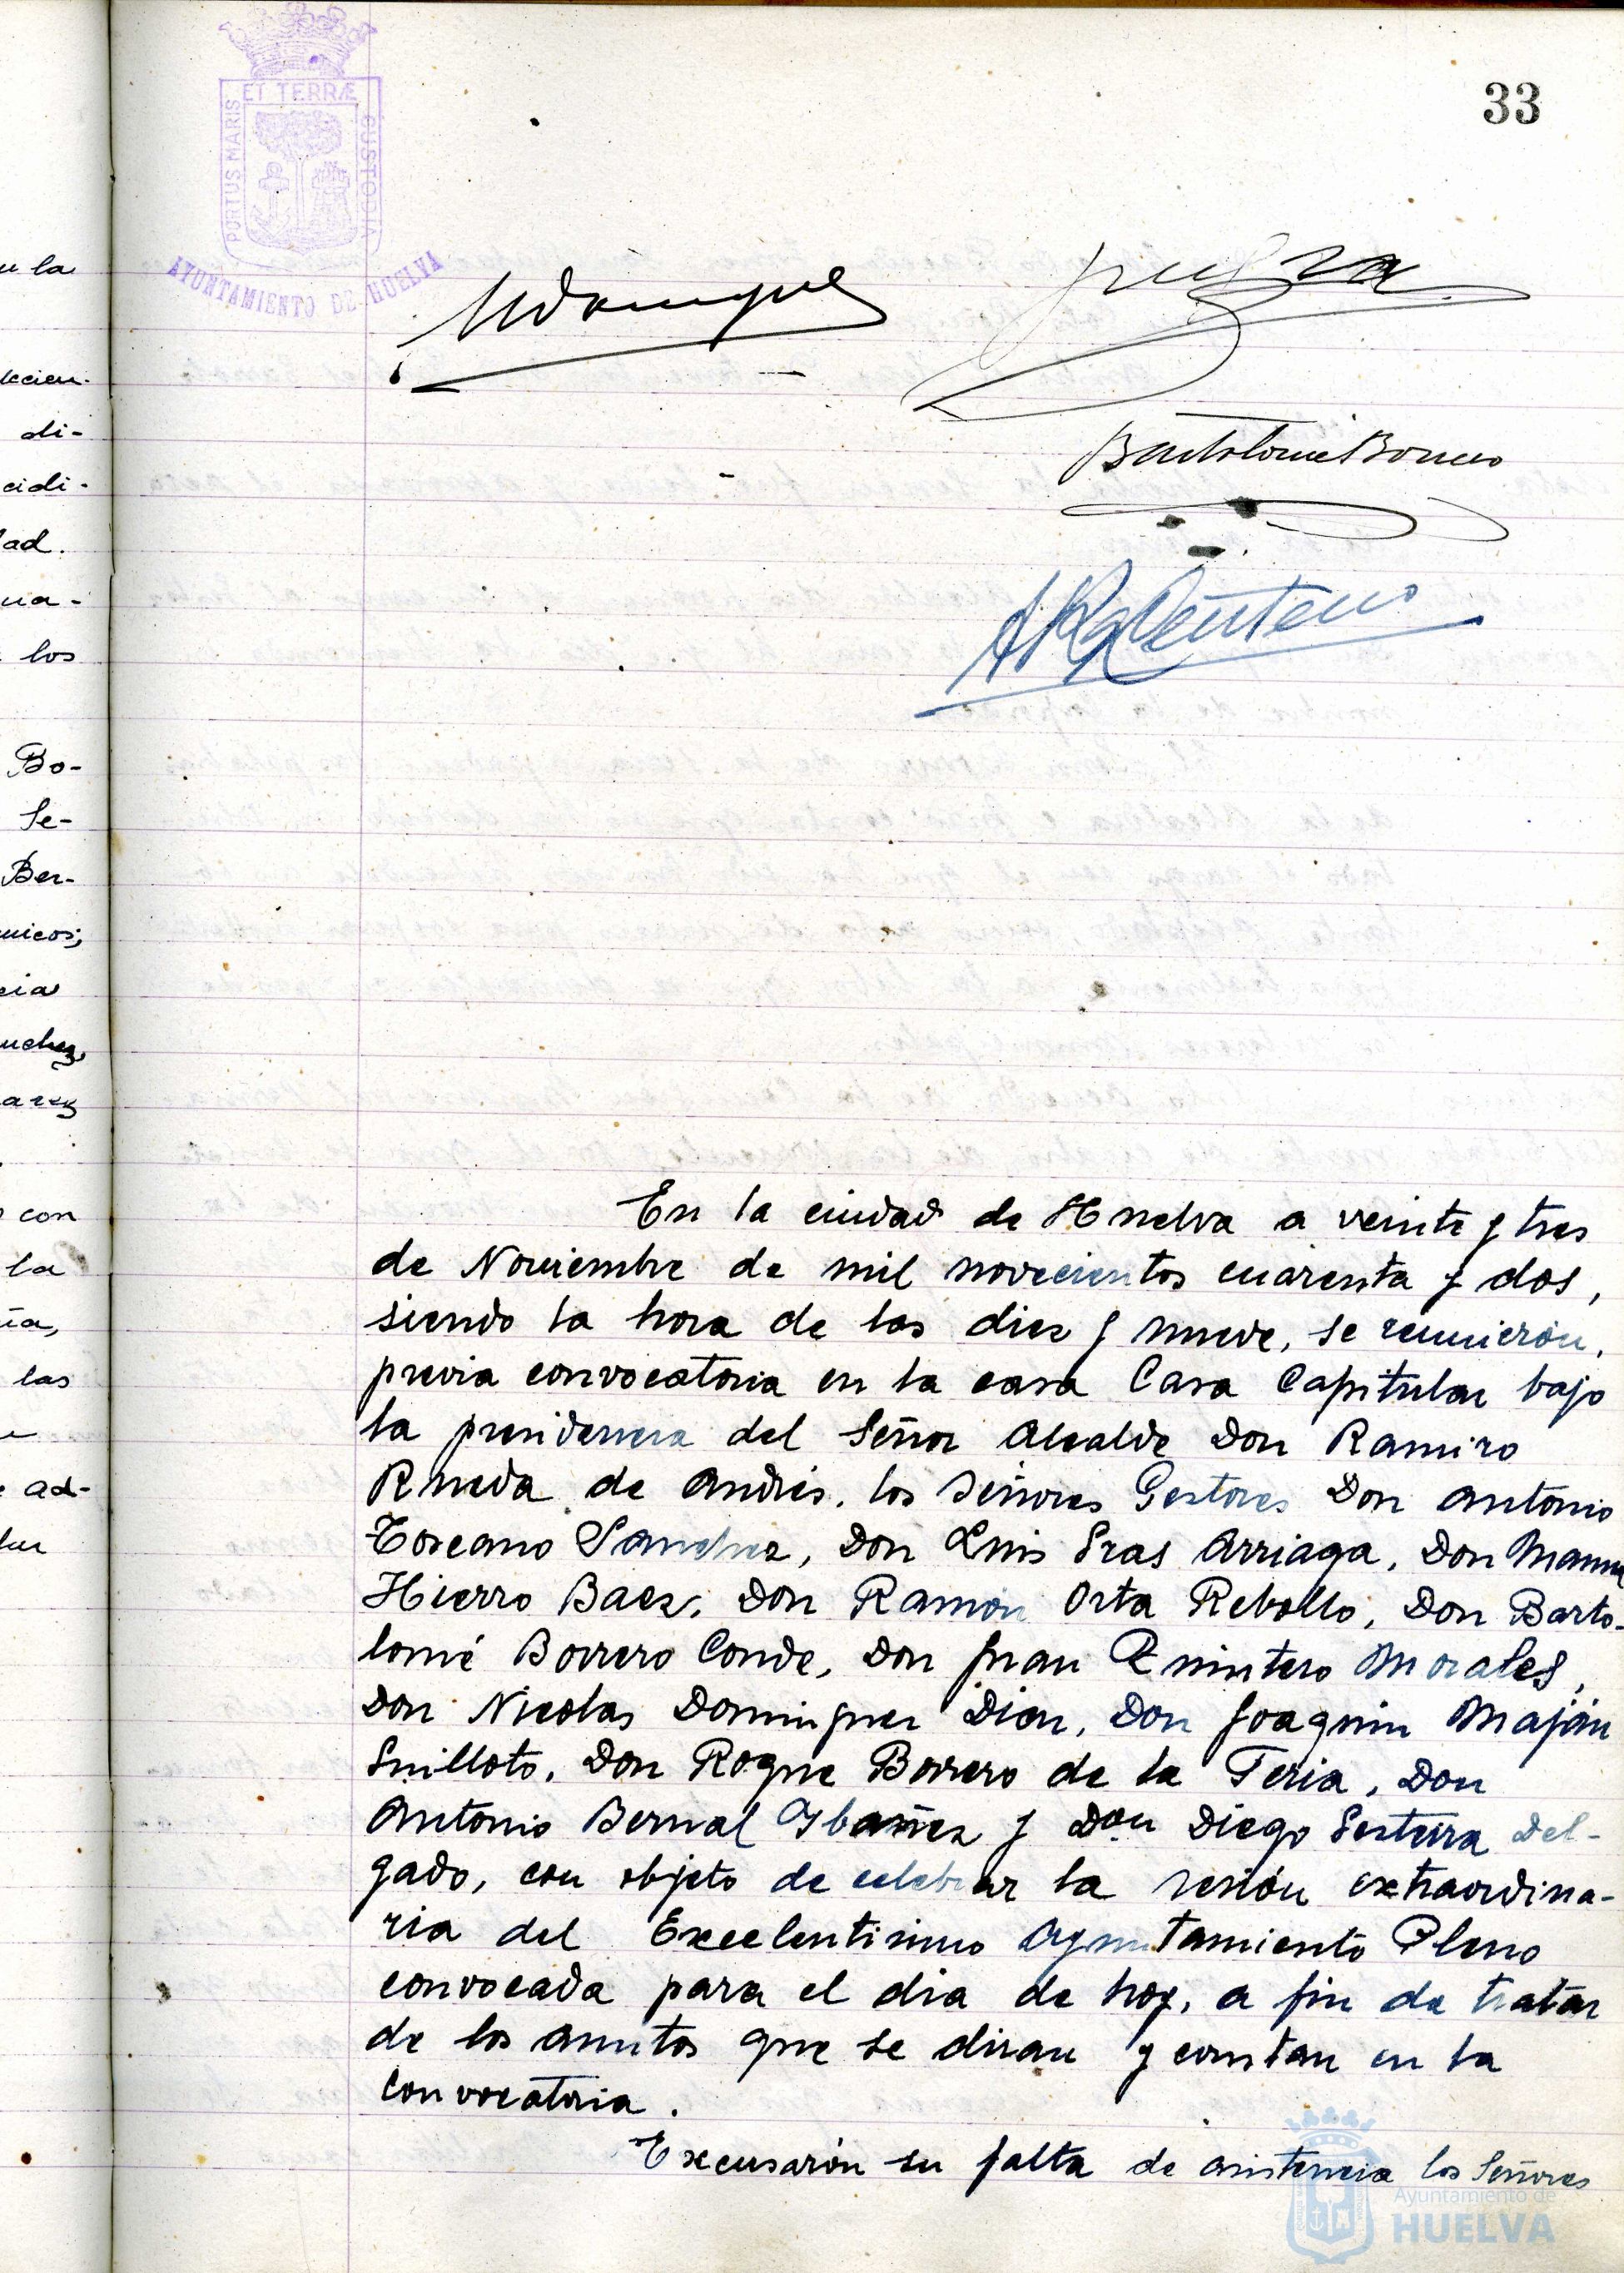 33
ET TERRÆ
PORTUS MARIS
CUSTODIA
AYUNTAMIENTO DE HUELVA
Bartolomé Borrero
u la
di-
cidi-
ad.
ua-
los
Bo-
Se-
Ber-
micos;
cia
arez
con
la
ia,
las
ad-
En la ciudad de Huelva a veinte y tres
de Noviembre de mil novecientos cuarenta y dos,
siendo la hora de las diez y nueve, se reunieron,
previa convocatoria en la casa Casa Capitular bajo
la presidencia del Señor Alcalde Don Ramiro
Rueda de Andrés, los señores Gestores Don Antonio
Toscano Sanchez, Don Luis Sras Arriaga, Don Manuel
Hierro Baez, Don Ramon Orta Rebollo, Don Barto-
lomé Borrero Conde, Don Juan Quintero Morales,
Don Nicolas Dominguez Diaz, Don Joaquin Maján
Guilloto, Don Roque Borrero de la Feria, Don
Antonio Bernal Ybañez y Don Diego Del-
gado, con objeto de celebrar la sesión extraordina-
ria del Excelentisimo Ayuntamiento Pleno
convocada para el dia de hoy, a fin de tratar
de los asuntos que se diran y constan en la
convocatoria.
Excusarón su falta de asistencia los Señores
Ayuntamiento de
HUELVA